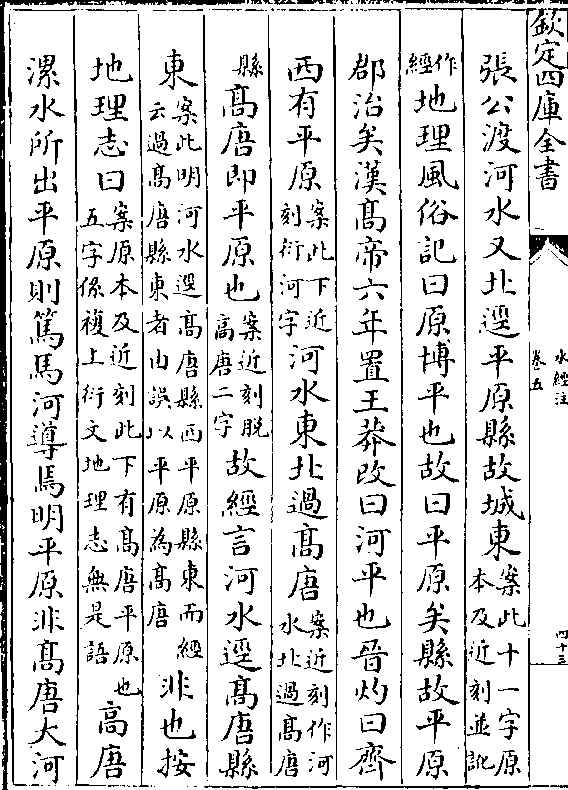 欽定四庫全書
水經注
卷五
四十三
張公渡河水又北逕平原縣故城東案此十一字原本及近刻並訛
作經地理風俗記曰原博平也故曰平原矣縣故平原
郡治矣漢髙帝六年置王莽改曰河平也晉灼曰齊
西有平原案此下近刻衍河字河水東北過髙唐案近刻作河水北過髙唐
縣髙唐即平原也案近刻脫髙唐二字故經言河水逕髙唐縣
東案此明河水逕髙唐縣西平原縣東而經云過髙唐縣東者由誤以平原為髙唐非也按
地理志曰案原本及近刻此下有髙唐平原也五字係複上衍文地理志無是語高唐
漯水所出平原則篤馬河導焉明平原非髙唐大河